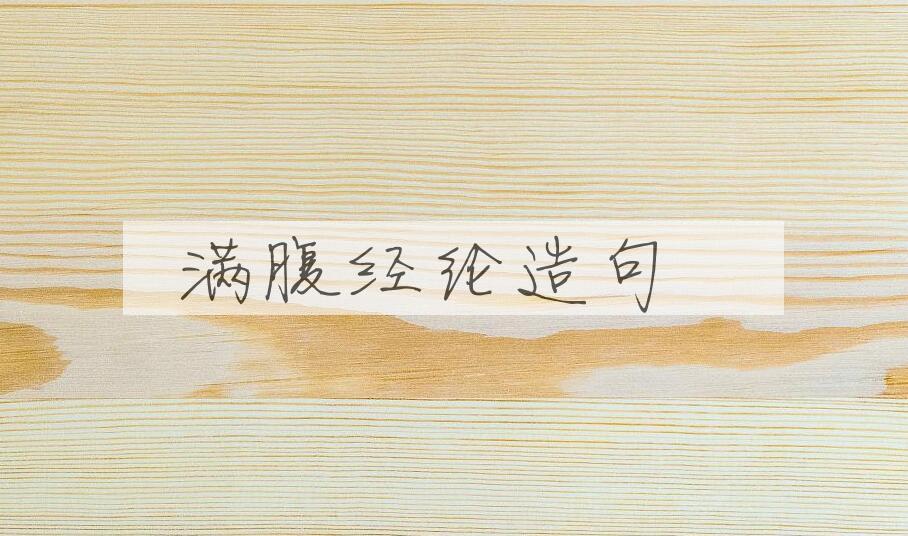 满腹经纶造句